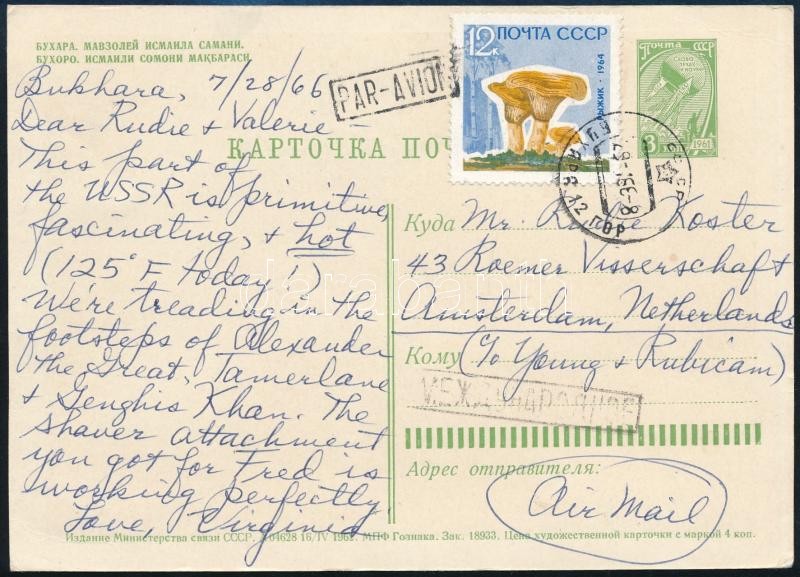 БУХАРА. МАВЗОЛЕЙ ИСМАИЛА САМАНИ.
БУХОРО. ИСМАИЛИ СОМОНИ МАҚБАРАСИ.
Bukhara, 7/28/66
Dear Rudie & Valerie –
This part of
the USSR is primitive,
fascinating, & hot
(125° F today!)
We're treading in the
footsteps of Alexander
the Great, Tamerlane
& Genghis Khan. The
shaver attachment
you got for Fred is
working perfectly.
Love, Virginia
PAR-AVION
12к ПОЧТА СССР
РЫЖИК · 1964
ПОЧТА СССР
3 1961
КАРТОЧКА
СССР
Куда Mr. Koster
43 Roemer Visserschaft
Amsterdam, Netherlands
Кому (c/o Young & Rubicam)
МЕЖДУНАРОДНОЕ
Адрес отправителя:
Air Mail
Издание Министерства связи СССР. 04628 16/IV МПФ Гознака. Зак. 18933. Цена художественной карточки с маркой 4 коп.